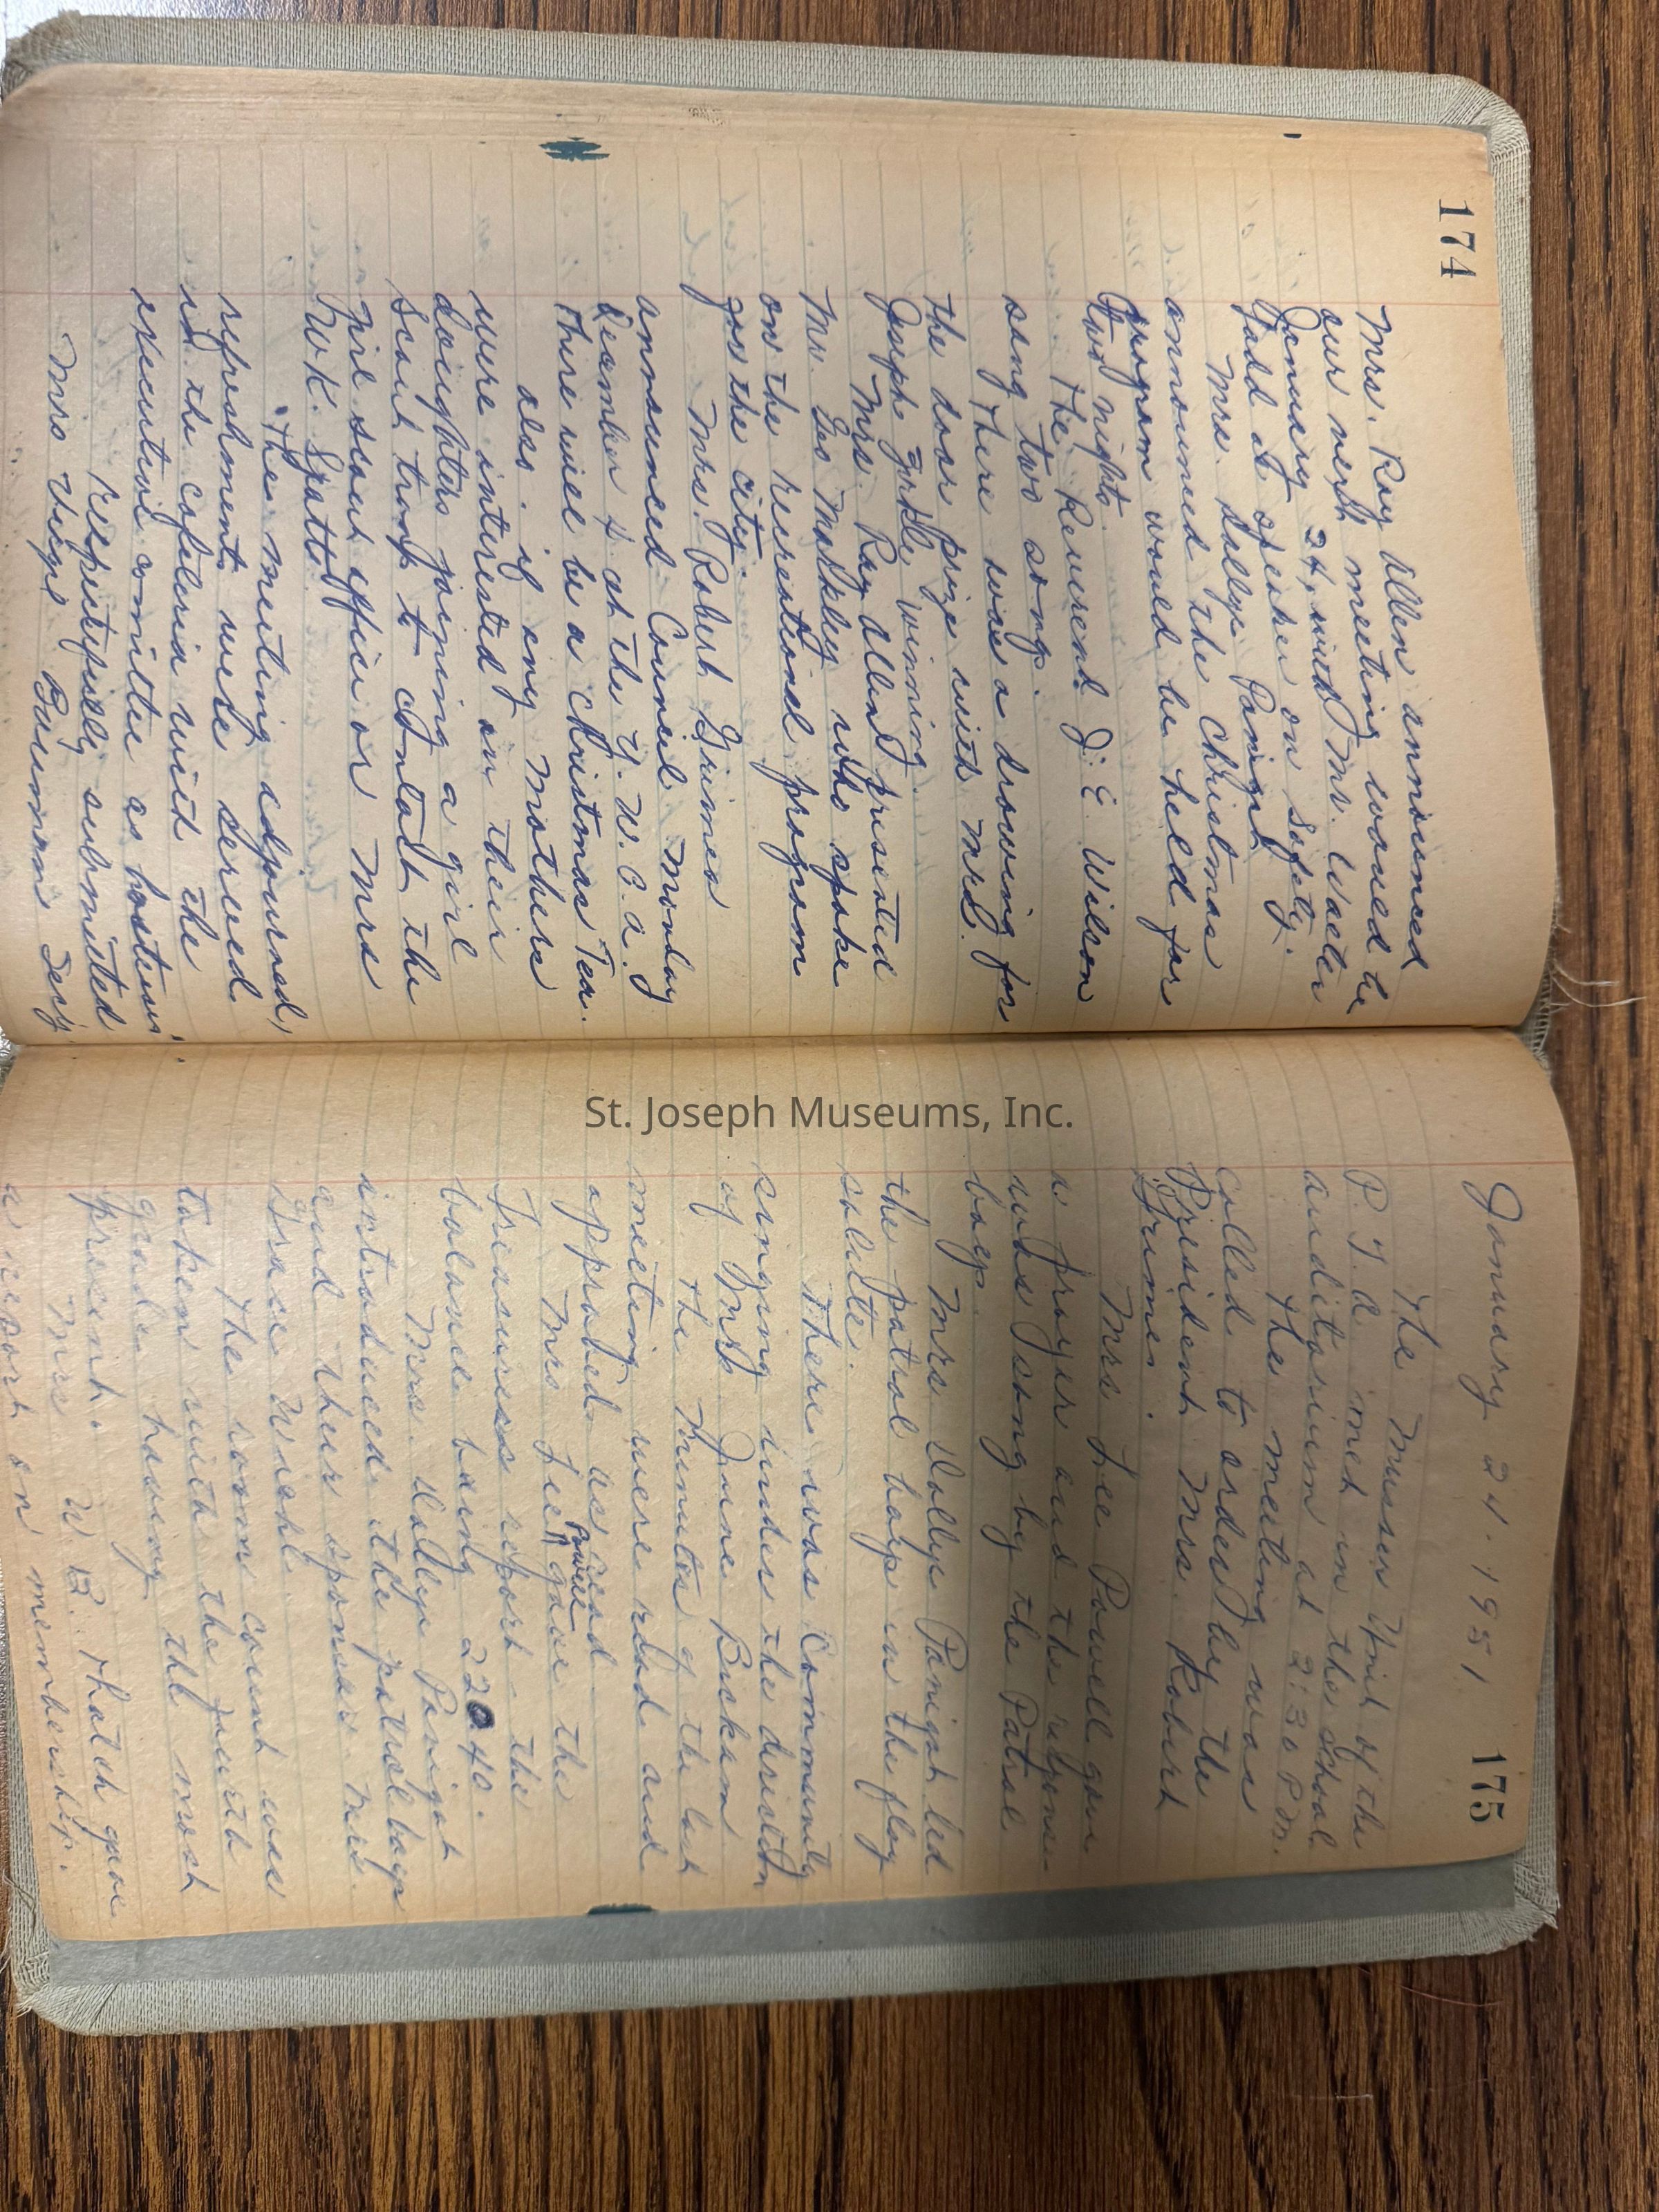 174
Mrs. Ray Allen announced
our next meeting would be
January 24, with Mr. Walter
Gadd as speaker on safety.
Mrs. Dallye Panigot
announced the Christmas
program would be held for
two nights.
The Reverend J. E. Wilson
sang two songs.
There was a drawing for
the door prize with Mrs.
Joseph winning.
Mrs. Ray Allen presented
Mr. Geo Markley who spoke
on the recreational program
for the city.
Mrs. Robert Grimes
announced Council Monday
December 4 at the Y. W. C. A.
There will be a Christmas Tea.
also. if any mothers
were interested in their
daughters joining a girl
scout troop to contact the
girl scout office or Mrs
W.K. Spatts.
The meeting adjourned,
refreshments were served
in the cafeteria with the
executive committee as hostess.
Respectfully submitted
Mrs Virgil Bauman Secy.
St. Joseph Museums, Inc.
175
January 24. 1951
The Musser Unit of the
P. T. A met in the school
auditorium at 2:30 P M.
The meeting was
called to order by the
President Mrs. Robert
Grimes.
Mrs Lee Powell gave
a prayer and the response
was sang by the Patrol
boys.
Mrs Dallye Panigot led
the patrol boys in the flag
salute.
There was Community
singing under the direction
of Mrs. June Buckam
The Minutes of the last
meeting were read and
approved as read.
Mrs Lee Powell gave the
Treasurers report. the
balance being 220.40.
Mrs. Dallye Panigot
introduced the patrol boys
and their sponser Mrs.
Grace Wiehl.
The room count was
taken with the fourth
grade having the most
present.
Mrs W. B. Thatch gave
a report on membership.